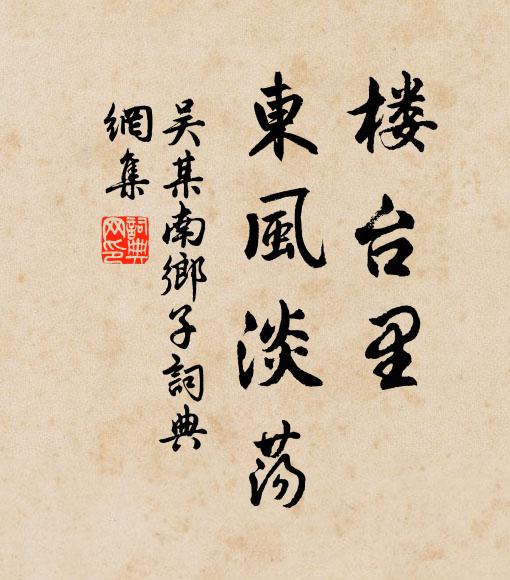 楼台里
東風淡荡
吴某南鄉子詞典
網集
詞典
网印